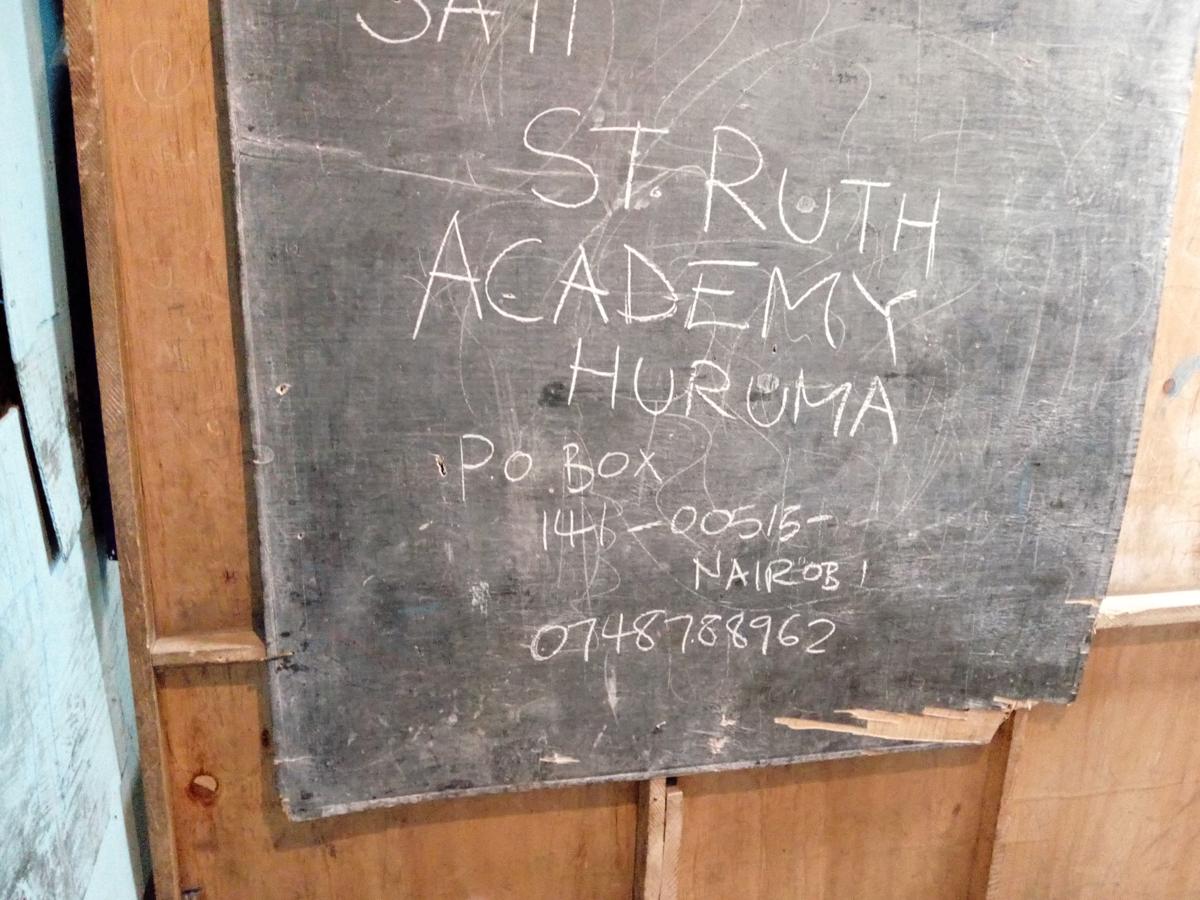 ST. RUTH
ACADEMY
HURUMA
P.O. BOX
146-00515-
NAIROBI
0748788962